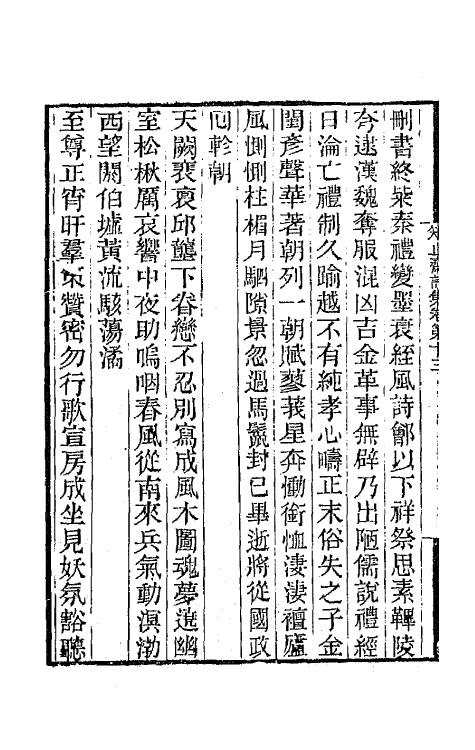 刪書終柴秦禮變墨衰絰風詩鄶以下祥祭思素韠陵
夸逮漢魏奪服混凶吉金革事無辟乃出陋儒說禮經
日淪亡禮制久踰越不有純孝心疇正末俗失之子金
閨彥聲華著朝列一朝賦蓼莪星奔慟銜恤淒淒襢廬
風側側柱楣月駟隙景忽過馬鬣封已畢逝將從國政
回軫朝
天闕裵哀邱壟下眷戀不忍別寫成風木圖魂夢遶幽
室松楸厲哀響中夜助嗚咽春風從南來兵氣動溟渤
西望閼伯墟黃流駭蕩潏
至尊正宵旰羣策贊密勿行歌宣房成坐見妖氛豁聽
知止齋詩集卷第十三